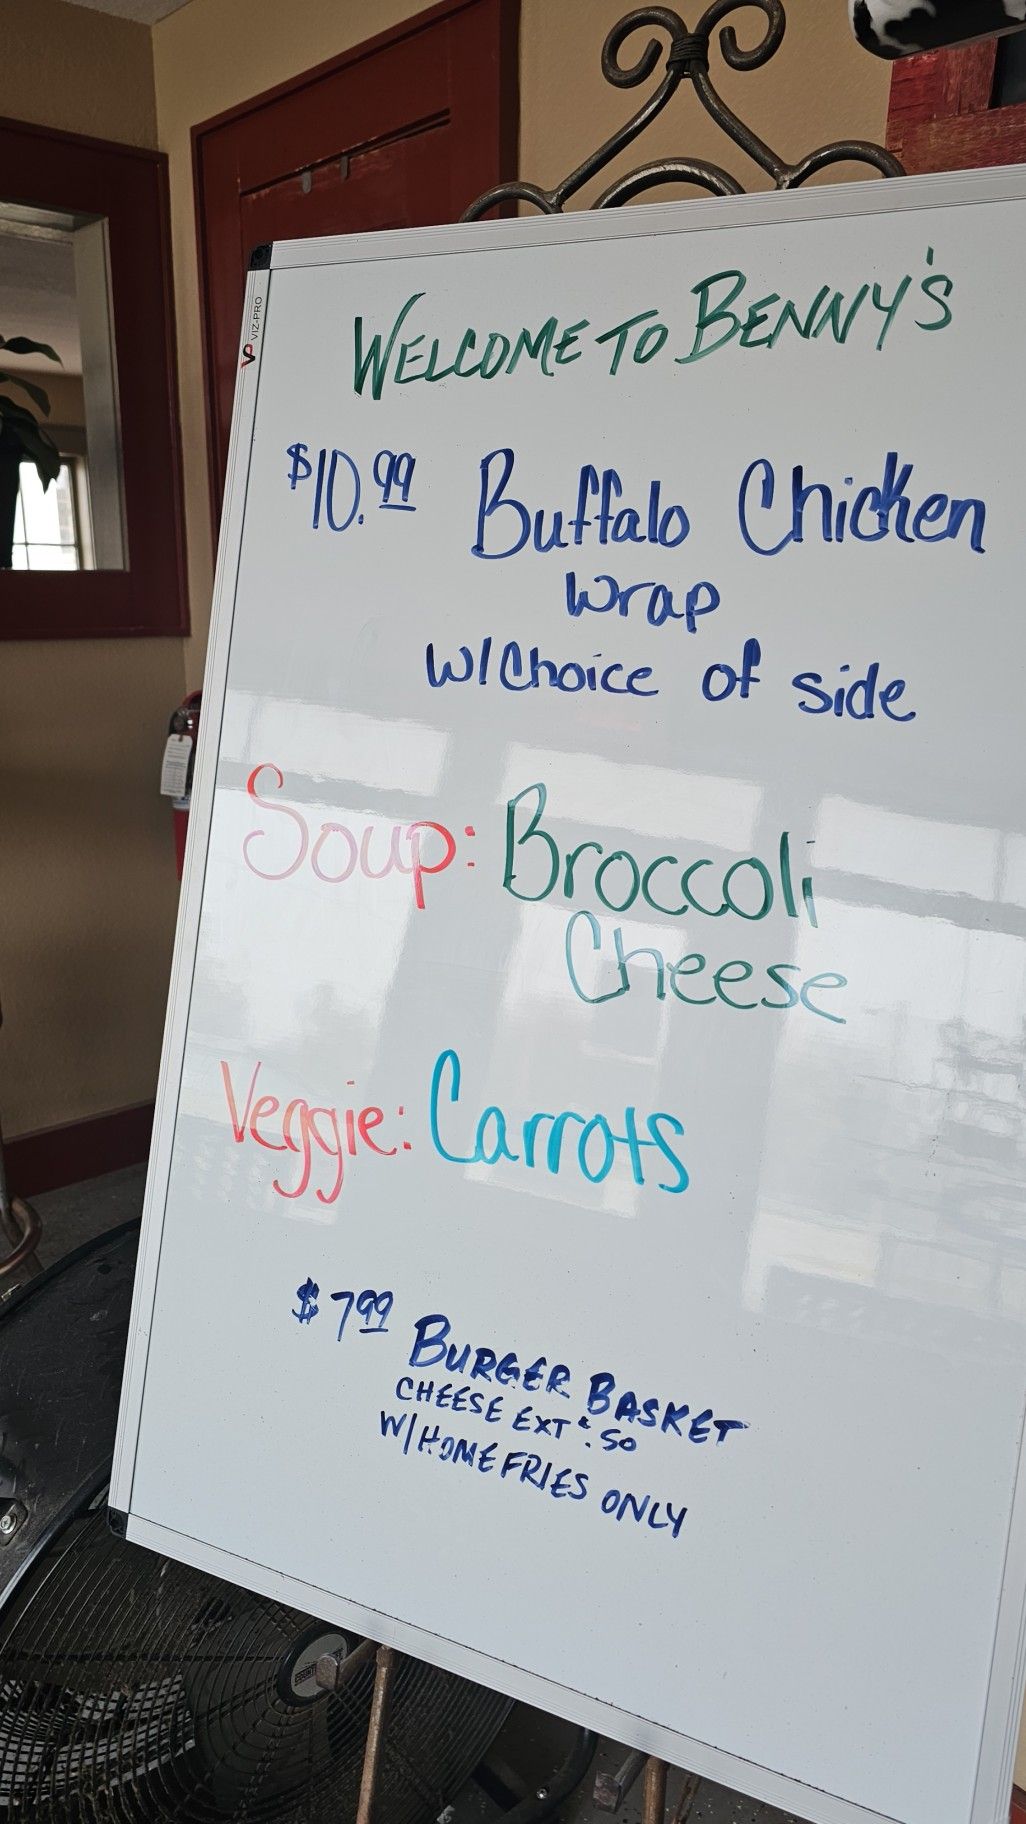 VP VIZ-PRO
WELCOME TO BENNY'S
$10.99 Buffalo Chicken
Wrap
W/Choice of side
Soup: Broccoli
Cheese
Veggie: Carrots
$7 99 BURGER BASKET
CHEESE EXT $.50
W/HOMEFRIES ONLY